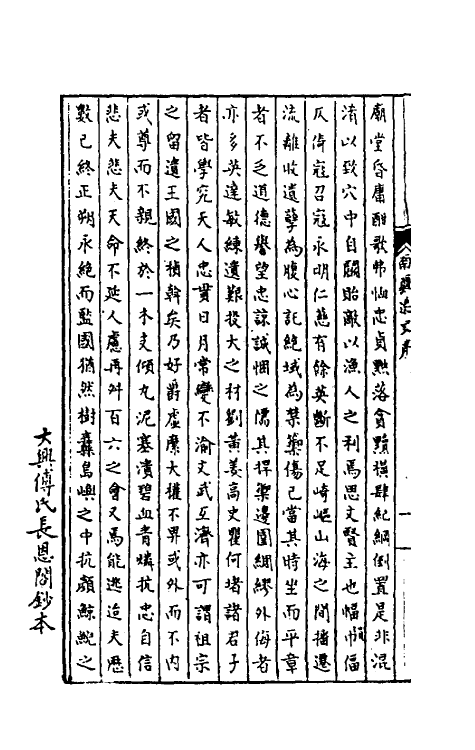 南疆逸史序
一
廟堂昏庸酣歌弗恤忠貞黜落貪黷橫肆紀綱倒置是非混
淆以致穴中自鬭貽敵以漁人之利焉思文賢主也幅㡓偪
仄倚寇召寇永明仁慈有餘英斷不足崎嶇山海之間播遷
流離收遺孽為腹心託絕域為禁籞傷已當其時坐而平章
者不乏道德譽望忠諒誠悃之儒其捍禦邊圉綢繆外侮者
亦多英達敏練遺艱投大之材劉黃姜高史瞿何堵諸君子
者皆學究天人忠貫日月常變不渝文武互濟亦可謂祖宗
之留遺王國之楨幹矣乃好爵虛縻大權不畀或外而不內
或尊而不親終於一木支傾丸泥塞潰碧血青燐抗忠自信
悲夫悲夫天命不延人慮再舛百六之會又焉能逃迨夫歷
數已終正朔永絕而監國猶然樹纛島嶼之中抗顏鯨鯢之
大興傅氏長恩閣鈔本